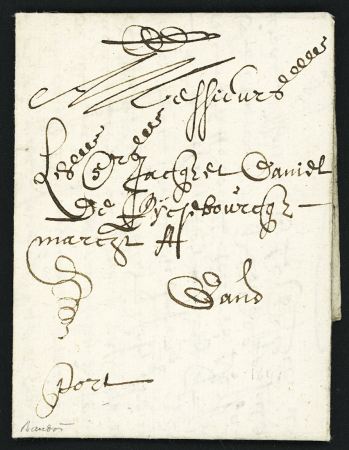 Messieurs
Les Srs Jacques et Daniel
De Rysebourcq
march A
Gand
port